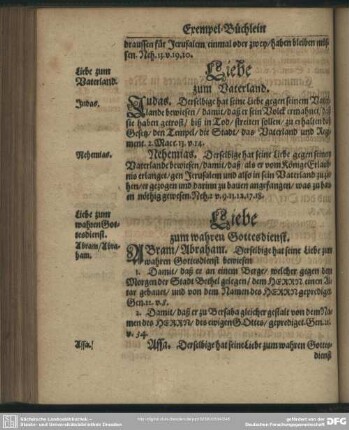 Exempel-Büchlein
draussen für Jerusalem einmal oder zwey/ haben bleiben müs-
sen. Neh. 13. v. 19. 20.
Liebe zum
Vaterland.
Liebe
zum Vaterland.
Judas.
Judas. Derselbige hat seine Liebe gegen seinem Vater-
lande bewiesen/ damit/ daß er sein Volck ermahnet, daß
sie haben getrost/ biß in Tod/ streiten sollen/ zu erhalten das
Gesetz/ den Tempel/ die Stadt/ das Vaterland und Regi-
ment. 2. Macc. 13. v. 14.
Nehemias.
Nehemias. Derselbige hat seine Liebe gegen seinen
Vaterlande bewiesen/ damit/ daß als er vom Könige Erlaub-
nis erlanget/ gen Jerusalem und also in sein Vaterland zu zie-
hen/ er gezogen und darinn zu bauen angefangen/ was zu bau-
en nöthig gewesen. Neh. 2
Liebe zum
wahren Got-
tesdienst.
Liebe
zum wahren Gottesdienst.
Abram/ Abra-
ham.
ABram/ Abraham. Derselbige hat seine Liebe zum
wahren Gottesdienst bewiesen
1. Damit/ daß er an einem Berge/ welcher gegen den
Morgen der Stadt Bethel gelegen/ dem HERRN einen Al-
tar gebauet/ und von dem Namen des HERRN geprediget
Gen. 12. v. 8.
2. Damit/ daß er zu Bersaba gleicher gestalt von dem Na-
men des HERRN/ des ewigen GOttes/ geprediget. Gen. 21.
Assa.
Assa. Derselbige hat seine Liebe zum wahren Gottes-
dienst
Sächsische Landesbibliothek -
Staats- und Universitätsbibliothek Dresden
gefördert von der
Deutschen Forschungsgemeinschaft
DFG